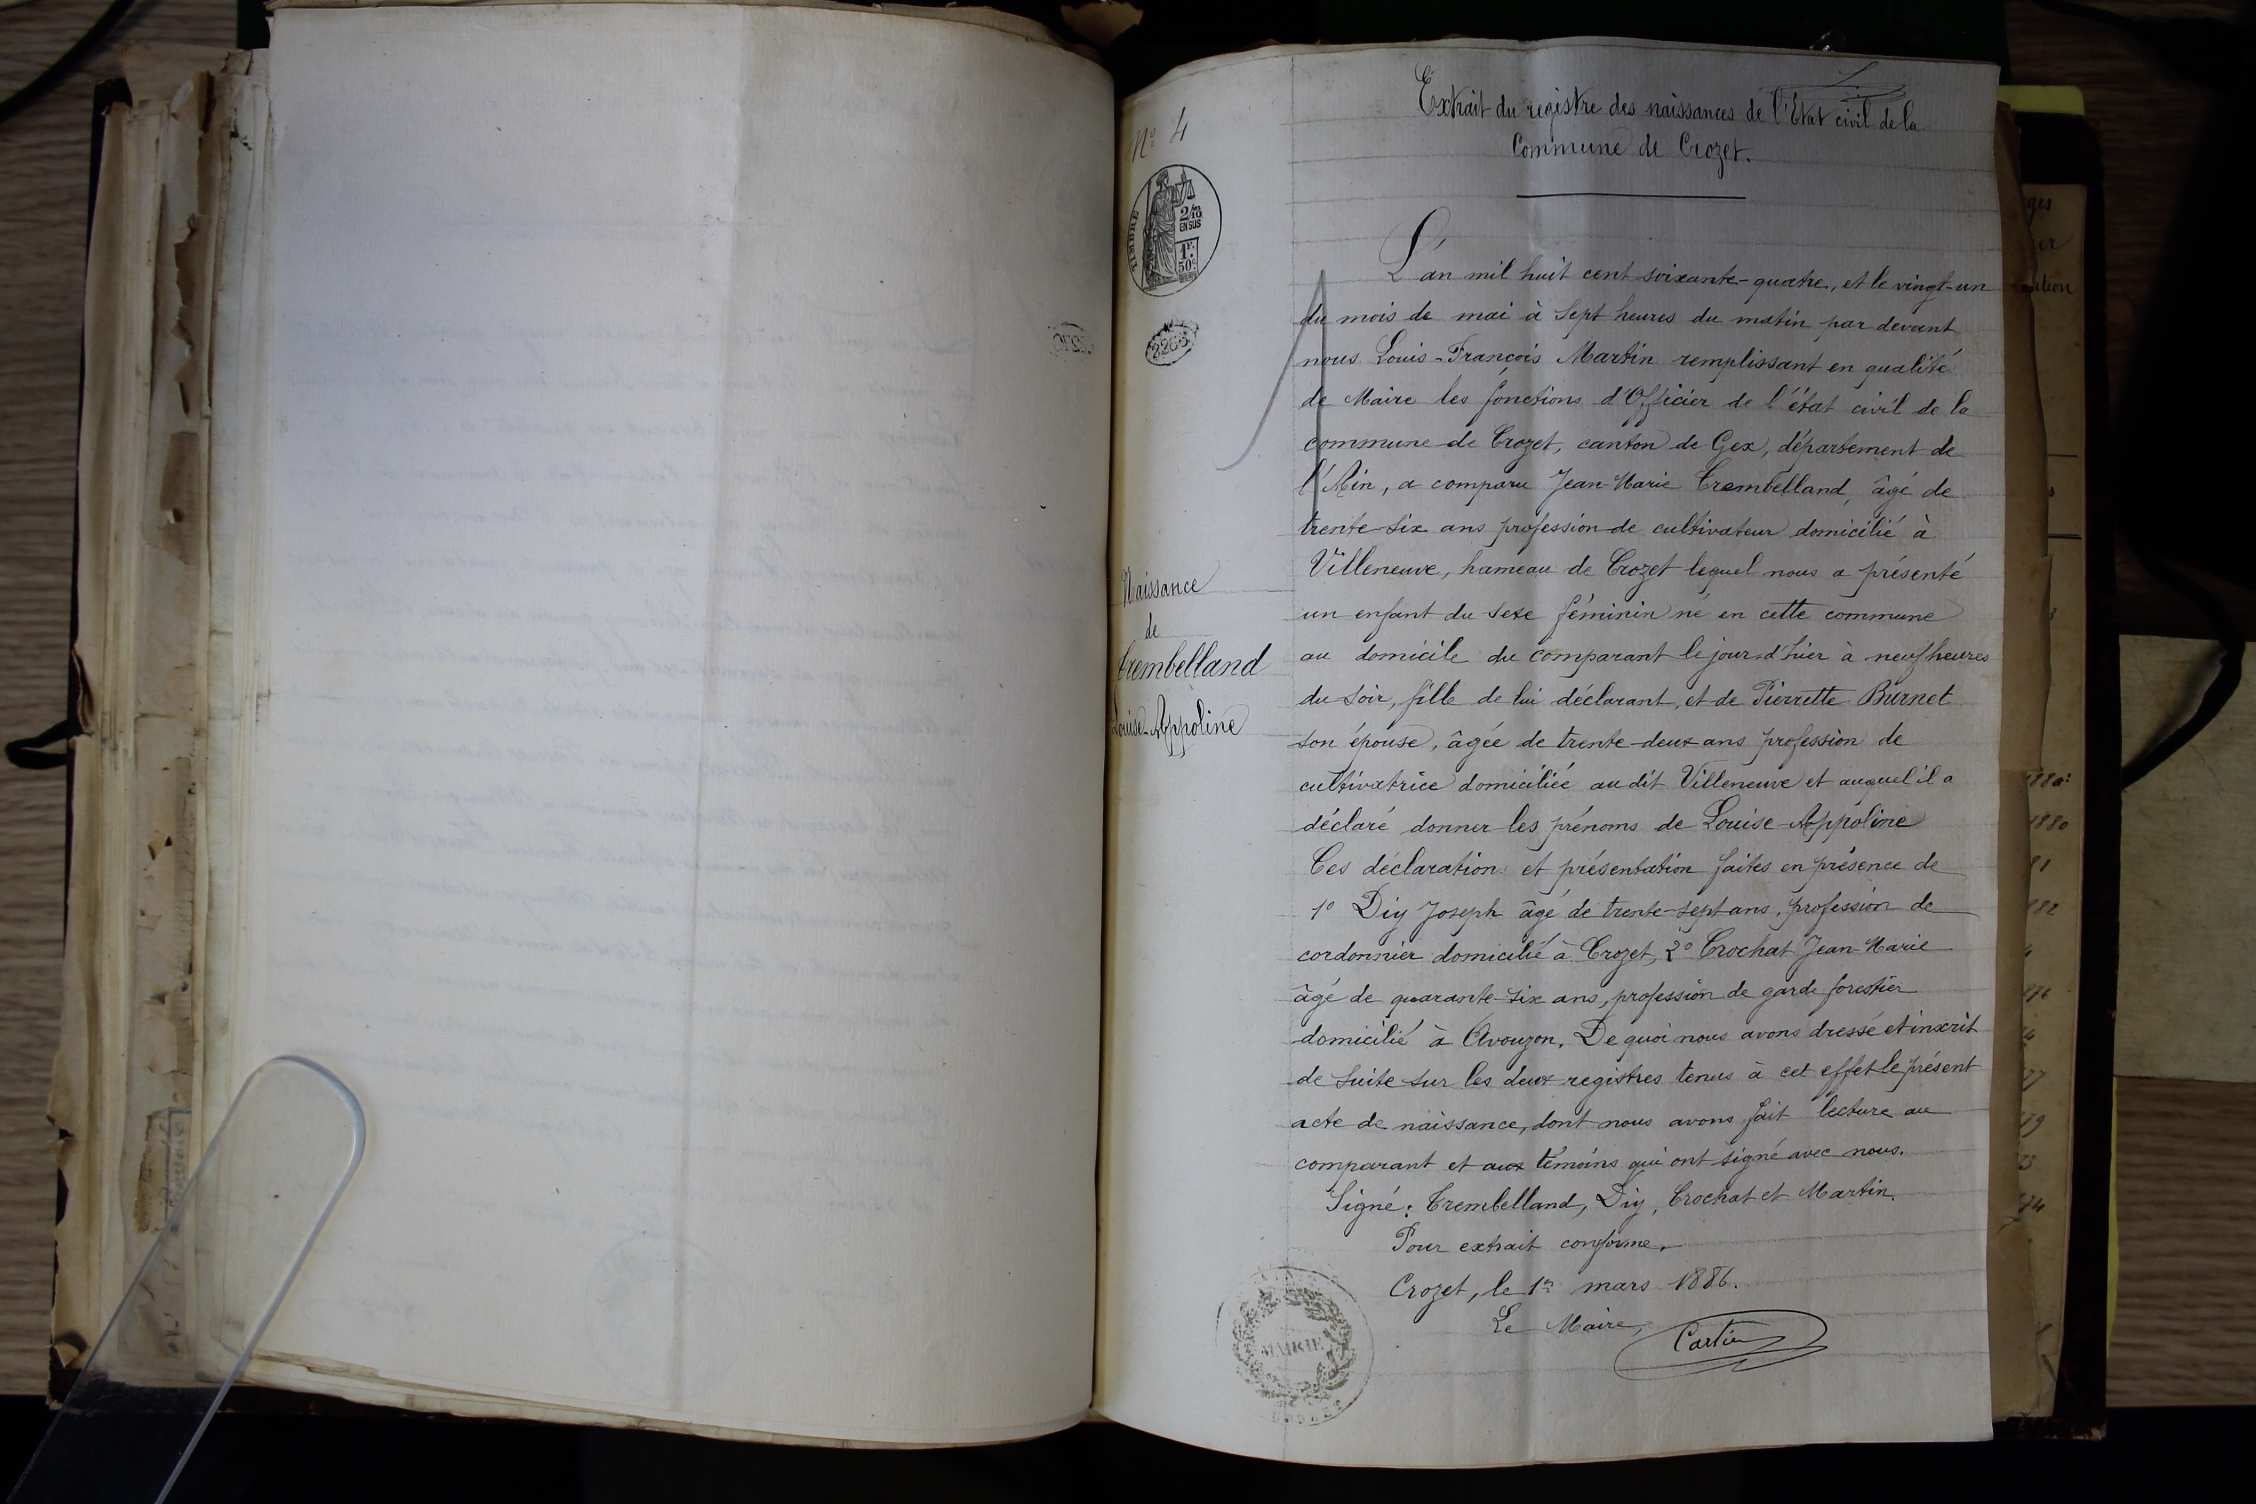 Extrait du registre des naissances de l'Etat civil de la
Commune de Crozet.
Nº 4
TIMBRE
2/10
EN SUS
1F.
50c
2266
L'an mil huit cent soixante-quatre, et le vingt-un
du mois de mai à sept heures du matin par devant
nous Louis-François Martin remplissant en qualité
de Maire les fonctions d'Officier de l'état civil de la
commune de Crozet, canton de Gex, département de
l'Ain, a comparu Jean-Marie Crembelland, âgé de
trente-six ans profession de cultivateur domicilié à
Villeneuve, hameau de Crozet lequel nous a présenté
un enfant du sexe féminin né en cette commune
au domicile du comparant le jour d'hier à neuf heures
du soir, fille de lui déclarant, et de Pierrette Burnet
son épouse, âgée de trente-deux ans profession de
cultivatrice domiciliée au dit Villeneuve et auquel il a
déclaré donner les prénoms de Louise-Appoline
Ces déclaration et présentation faites en présence de
1º Diy Joseph âgé de trente-sept ans, profession de
cordonnier domicilié à Crozet, 2º Crochat Jean-Marie
âgé de quarante-six ans, profession de garde forestier
domicilié à Avouzon. De quoi nous avons dressé et inscrit
de suite sur les deux registres tenus à cet effet le présent
acte de naissance, dont nous avons fait lecture au
comparant et aux témoins qui ont signé avec nous.
Signé: Crembelland, Diy, Crochat et Martin.
Pour extrait conforme.
Crozet, le 1er mars 1886.
Le Maire,
Cartier
MAIRIE
Naissance
de
Crembelland
Louise-Appoline
1880